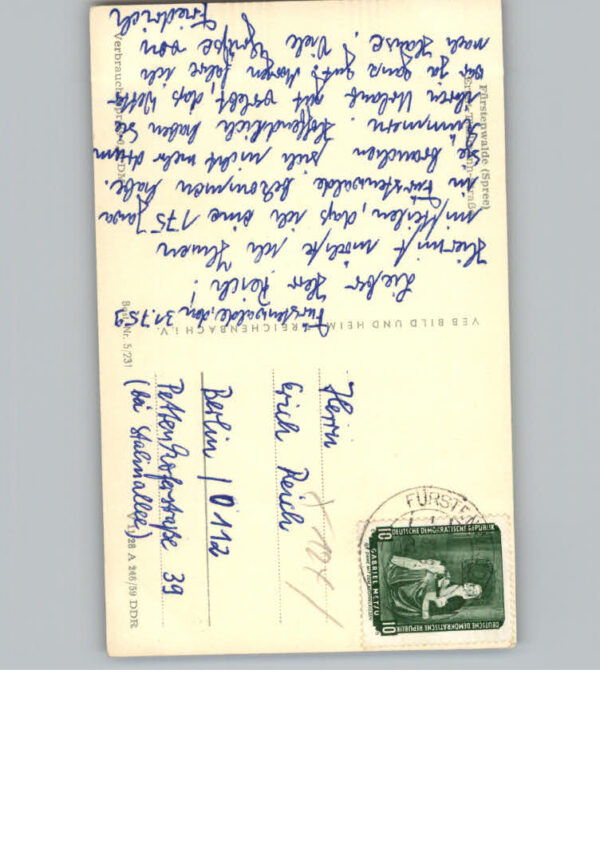 Fürstenwalde (Spree)
Fürstenwalde, den 31.7.59
Lieber Herr Reich!
Hiermit möchte ich Ihnen
mitteilen, das ich eine 175 Jawa
in Fürstenwalde bekommen habe.
Sie brauchen sich nicht mehr drum
kümmern. Hoffendlich haben Sie
Ihren Urlaub gut verlebt das Wetter
war ja ganz gut. Morgen fahre ich
nach Hause. Viele Grüße von
Friedrich
VEB BILD UND HEIMAT REICHENBACH i. V.
Herrn
Erich Reich
Berlin / O 112
Pettenkoferstraße 39
(bei Stalinallee)
Best.-Nr. 5/231
V 11/28 A 246/59 DDR
DEUTSCHE DEMOKRATISCHE REPUBLIK
10
GABRIEL METSU
DEUTSCHE DEMOKRATISCHE REPUBLIK
10
FÜRSTE